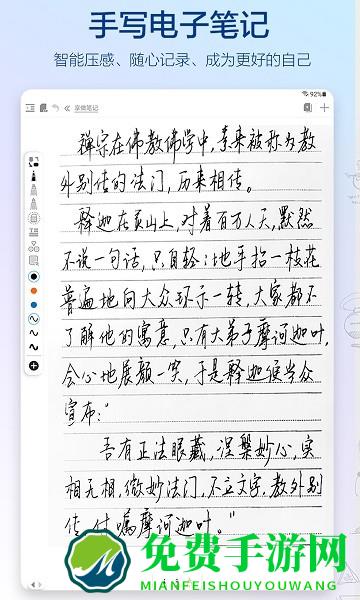 手写电子笔记
智能压感、随心记录、成为更好的自己
92%
享做笔记
禅宗在佛教佛学中,素来被称为教
外别传的法门,历来相传。
释迦在灵山上,对着百万人天,默然
不说一句话,只自轻轻地手拈一枝花
普遍地向大众环示一转,大家都不
了解他的寓意,只有大弟子摩诃迦叶,
会心地展颜一笑,于是释迦便当众
宣布:"
吾有正法眼藏,涅槃妙心,实
相无相,微妙法门,不立文字,教外别
传,付嘱摩诃迦叶。"
免费手游网
MIANFEISHOUYOUWANG